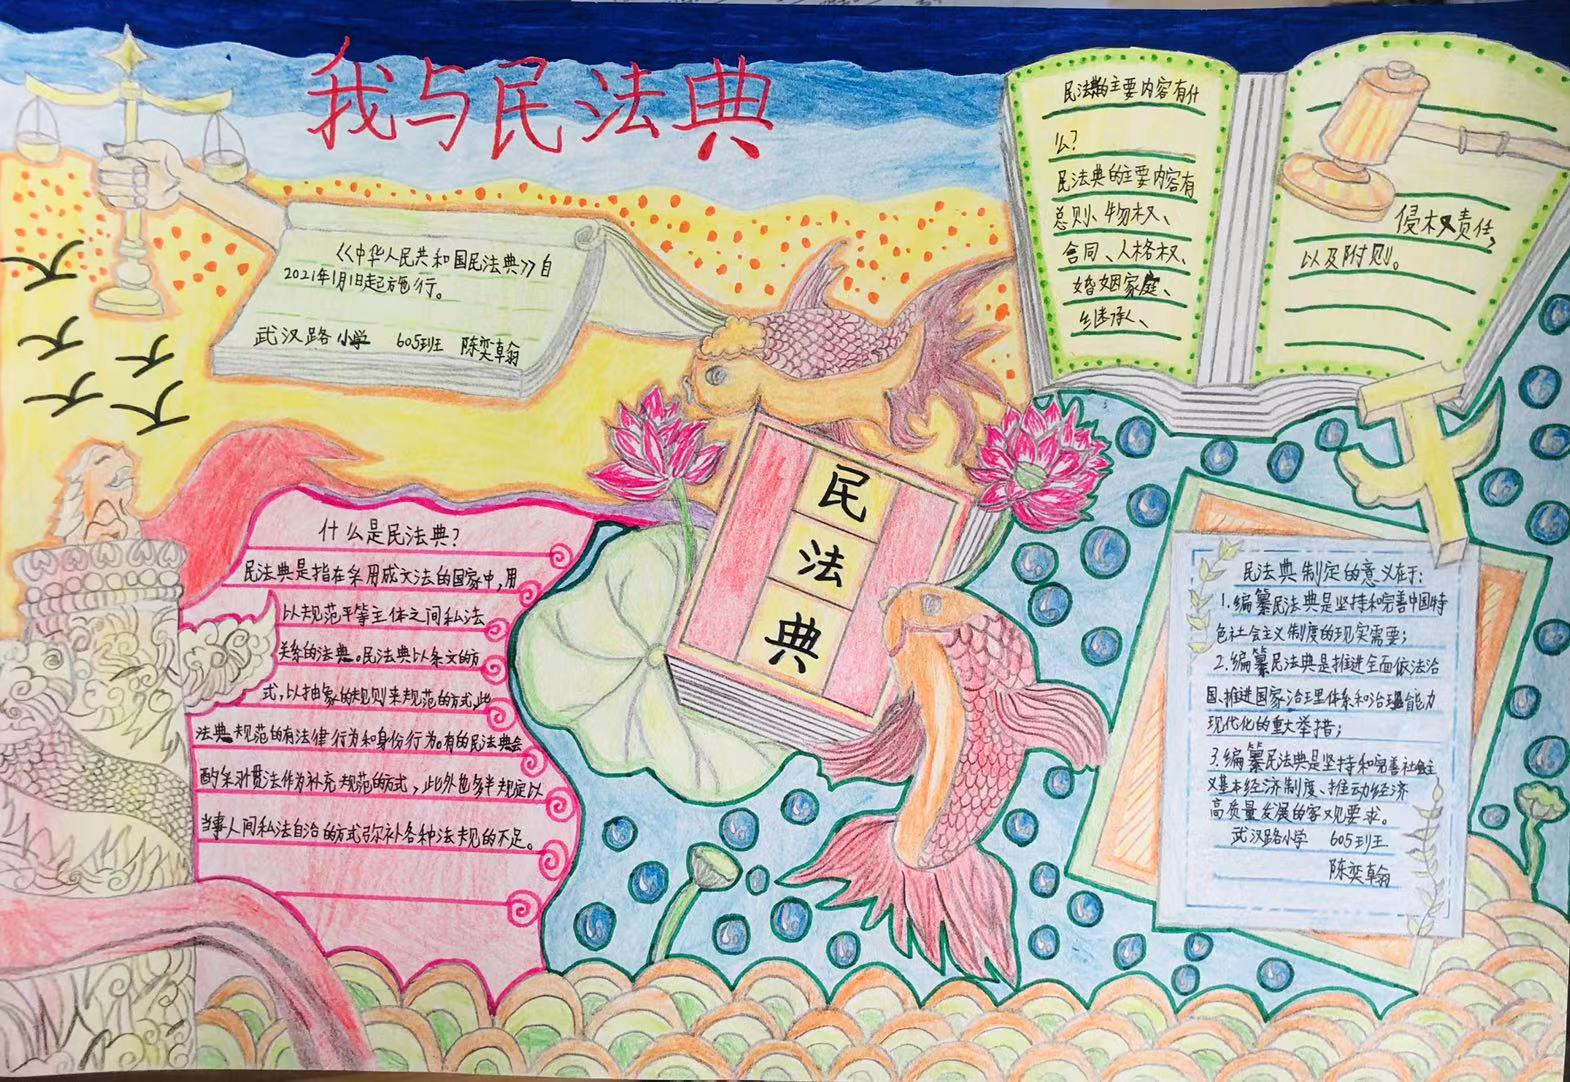 我与民法典
《中华人民共和国民法典》自
2021年1月1日起施行。
武汉路小学 605班 陈奕翰
民法典的主要内容有什
么?
民法典的主要内容有
总则、物权、
合同、人格权、
婚姻家庭、
继承、
侵权责任,
以及附则。
什么是民法典?
民法典是指在采用成文法的国家中,用
以规范平等主体之间私法
关系的法典。民法典以条文的方
式,以抽象的规则来规范的方式,此
法典规范的有法律行为和身份行为。有的民法典会
酌采习惯法作为补充规范的方式,此外也多半规定以
当事人间私法自治的方式弥补各种法规的不足。
民
法
典
民法典制定的意义在于:
1.编纂民法典是坚持和完善中国特
色社会主义制度的现实需要;
2.编纂民法典是推进全面依法治
国、推进国家治理体系和治理能力
现代化的重大举措;
3.编纂民法典是坚持和完善社会主
义基本经济制度、推动经济
高质量发展的客观要求。
武汉路小学 605班
陈奕翰